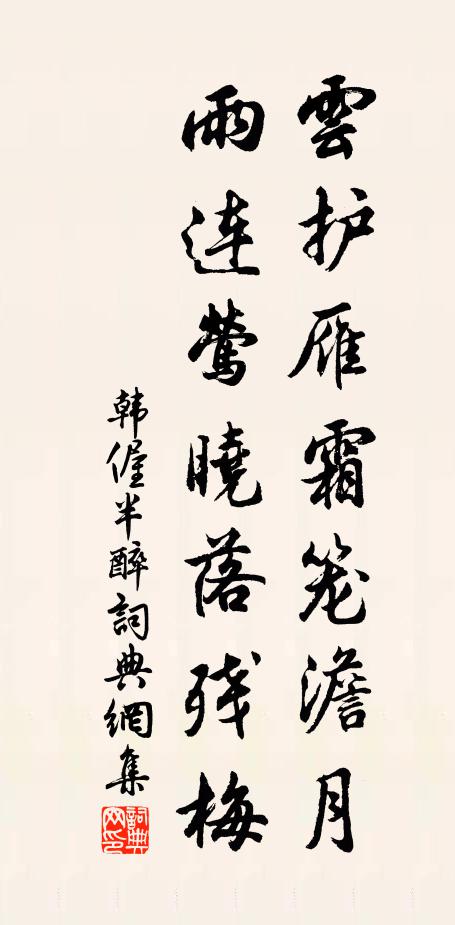 雲护雁霜笼澹月
雨连莺曉落残梅
韩偓半醉詞典網集
詞典網印